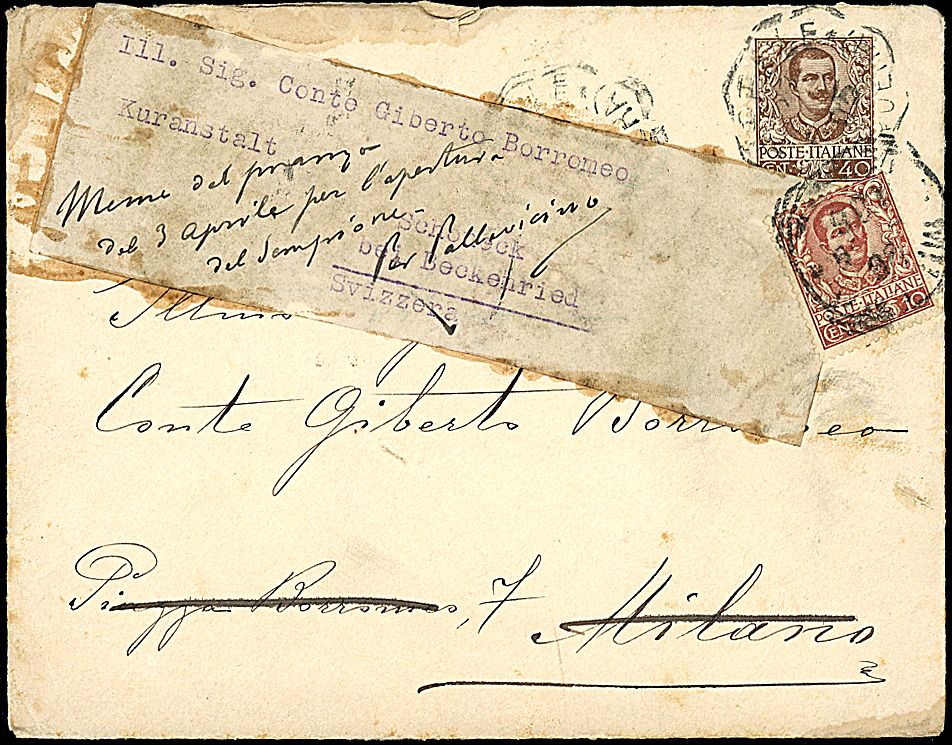 Ill. Sig. Conte Giberto Borromeo
Kuranstalt
Schöneck
bei Beckenried
Svizzera
Meme del pranzo
del 3 aprile per l'apertura
del Sempione
Pallavicino
Illmo
Conte Giberto Borromeo
Piazza Borromeo, 7 Milano
POSTE·ITALIANE
CEN. 40
POSTE·ITALIANE
CEN. 10